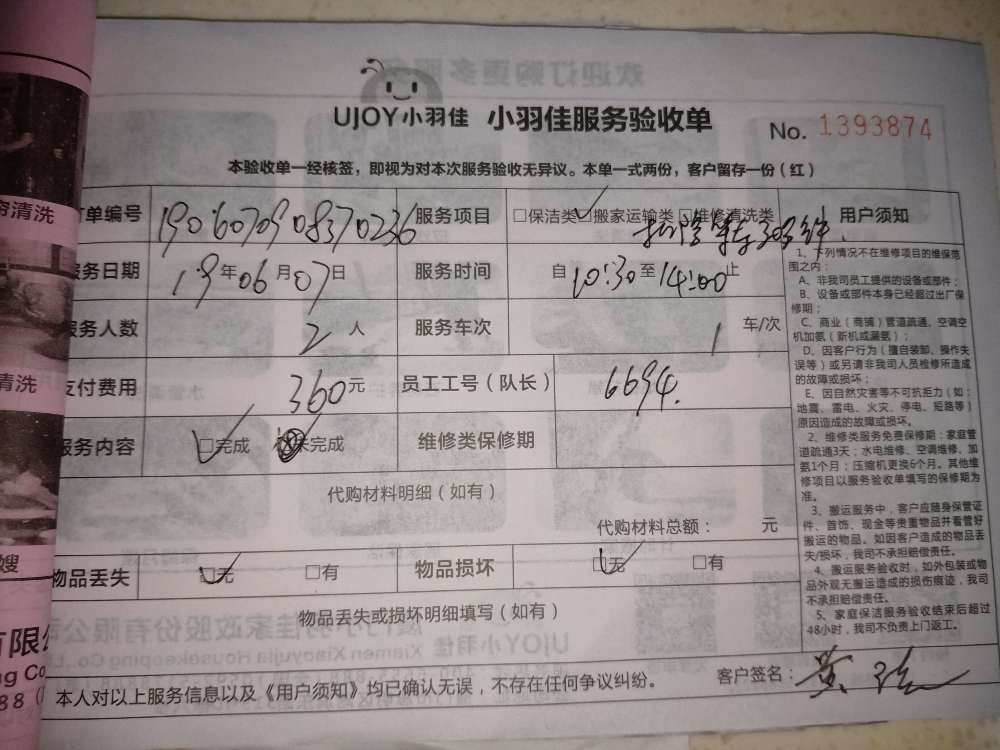 UJOY小羽佳 小羽佳服务验收单 No. 1393874
本验收单一经核签，即视为对本次服务验收无异议。本单一式两份，客户留存一份（红）
订单编号 1906070908370236 服务项目 □保洁类 □搬家运输类 □维修清洗类 用户须知
服务日期 19年06月07日 服务时间 自10:30至14:00止
服务人数 2人 服务车次 1车/次
支付费用 360元 员工工号（队长） 6694.
服务内容 □完成 未完成 维修类保修期
代购材料明细（如有）
代购材料总额： 元
物品丢失 □无 □有 物品损坏 □无 □有
物品丢失或损坏明细填写（如有）
本人对以上服务信息以及《用户须知》均已确认无误，不存在任何争议纠纷。 客户签名：黄
1、下列情况不在维修项目的维保范
围之内：
A、非我司员工提供的设备或部件；
B、设备或部件本身已经超过出厂保
修期；
C、商业（商铺）管道疏通、空调空
机加氨（新机或漏氨）；
D、因客户行为（擅自装卸、操作失
误等）或另请非我司人员检修所造成
的故障或损坏；
E、因自然灾害等不可抗拒力（如：
地震、雷电、火灾、停电、短路等）
原因造成的故障或损坏。
2、维修类服务免费保修期：家庭管
道疏通3天；水电维修、空调维修、加
氨1个月；压缩机更换6个月。其他维
修项目以服务验收单填写的保修期为
准。
3、搬运服务中，客户应随身保管证
件、首饰、现金等贵重物品并看管好
搬运的物品。如因客户造成的物品丢
失/损坏，我司不承担赔偿责任。
4、搬运服务验收时，如外包装或物
品外观无搬运造成的损伤痕迹，我司
不承担赔偿责任。
5、家庭保洁服务验收结束后超过
48小时，我司不负责上门返工。
帘清洗
清洗
嫂
有限
ng Co
88